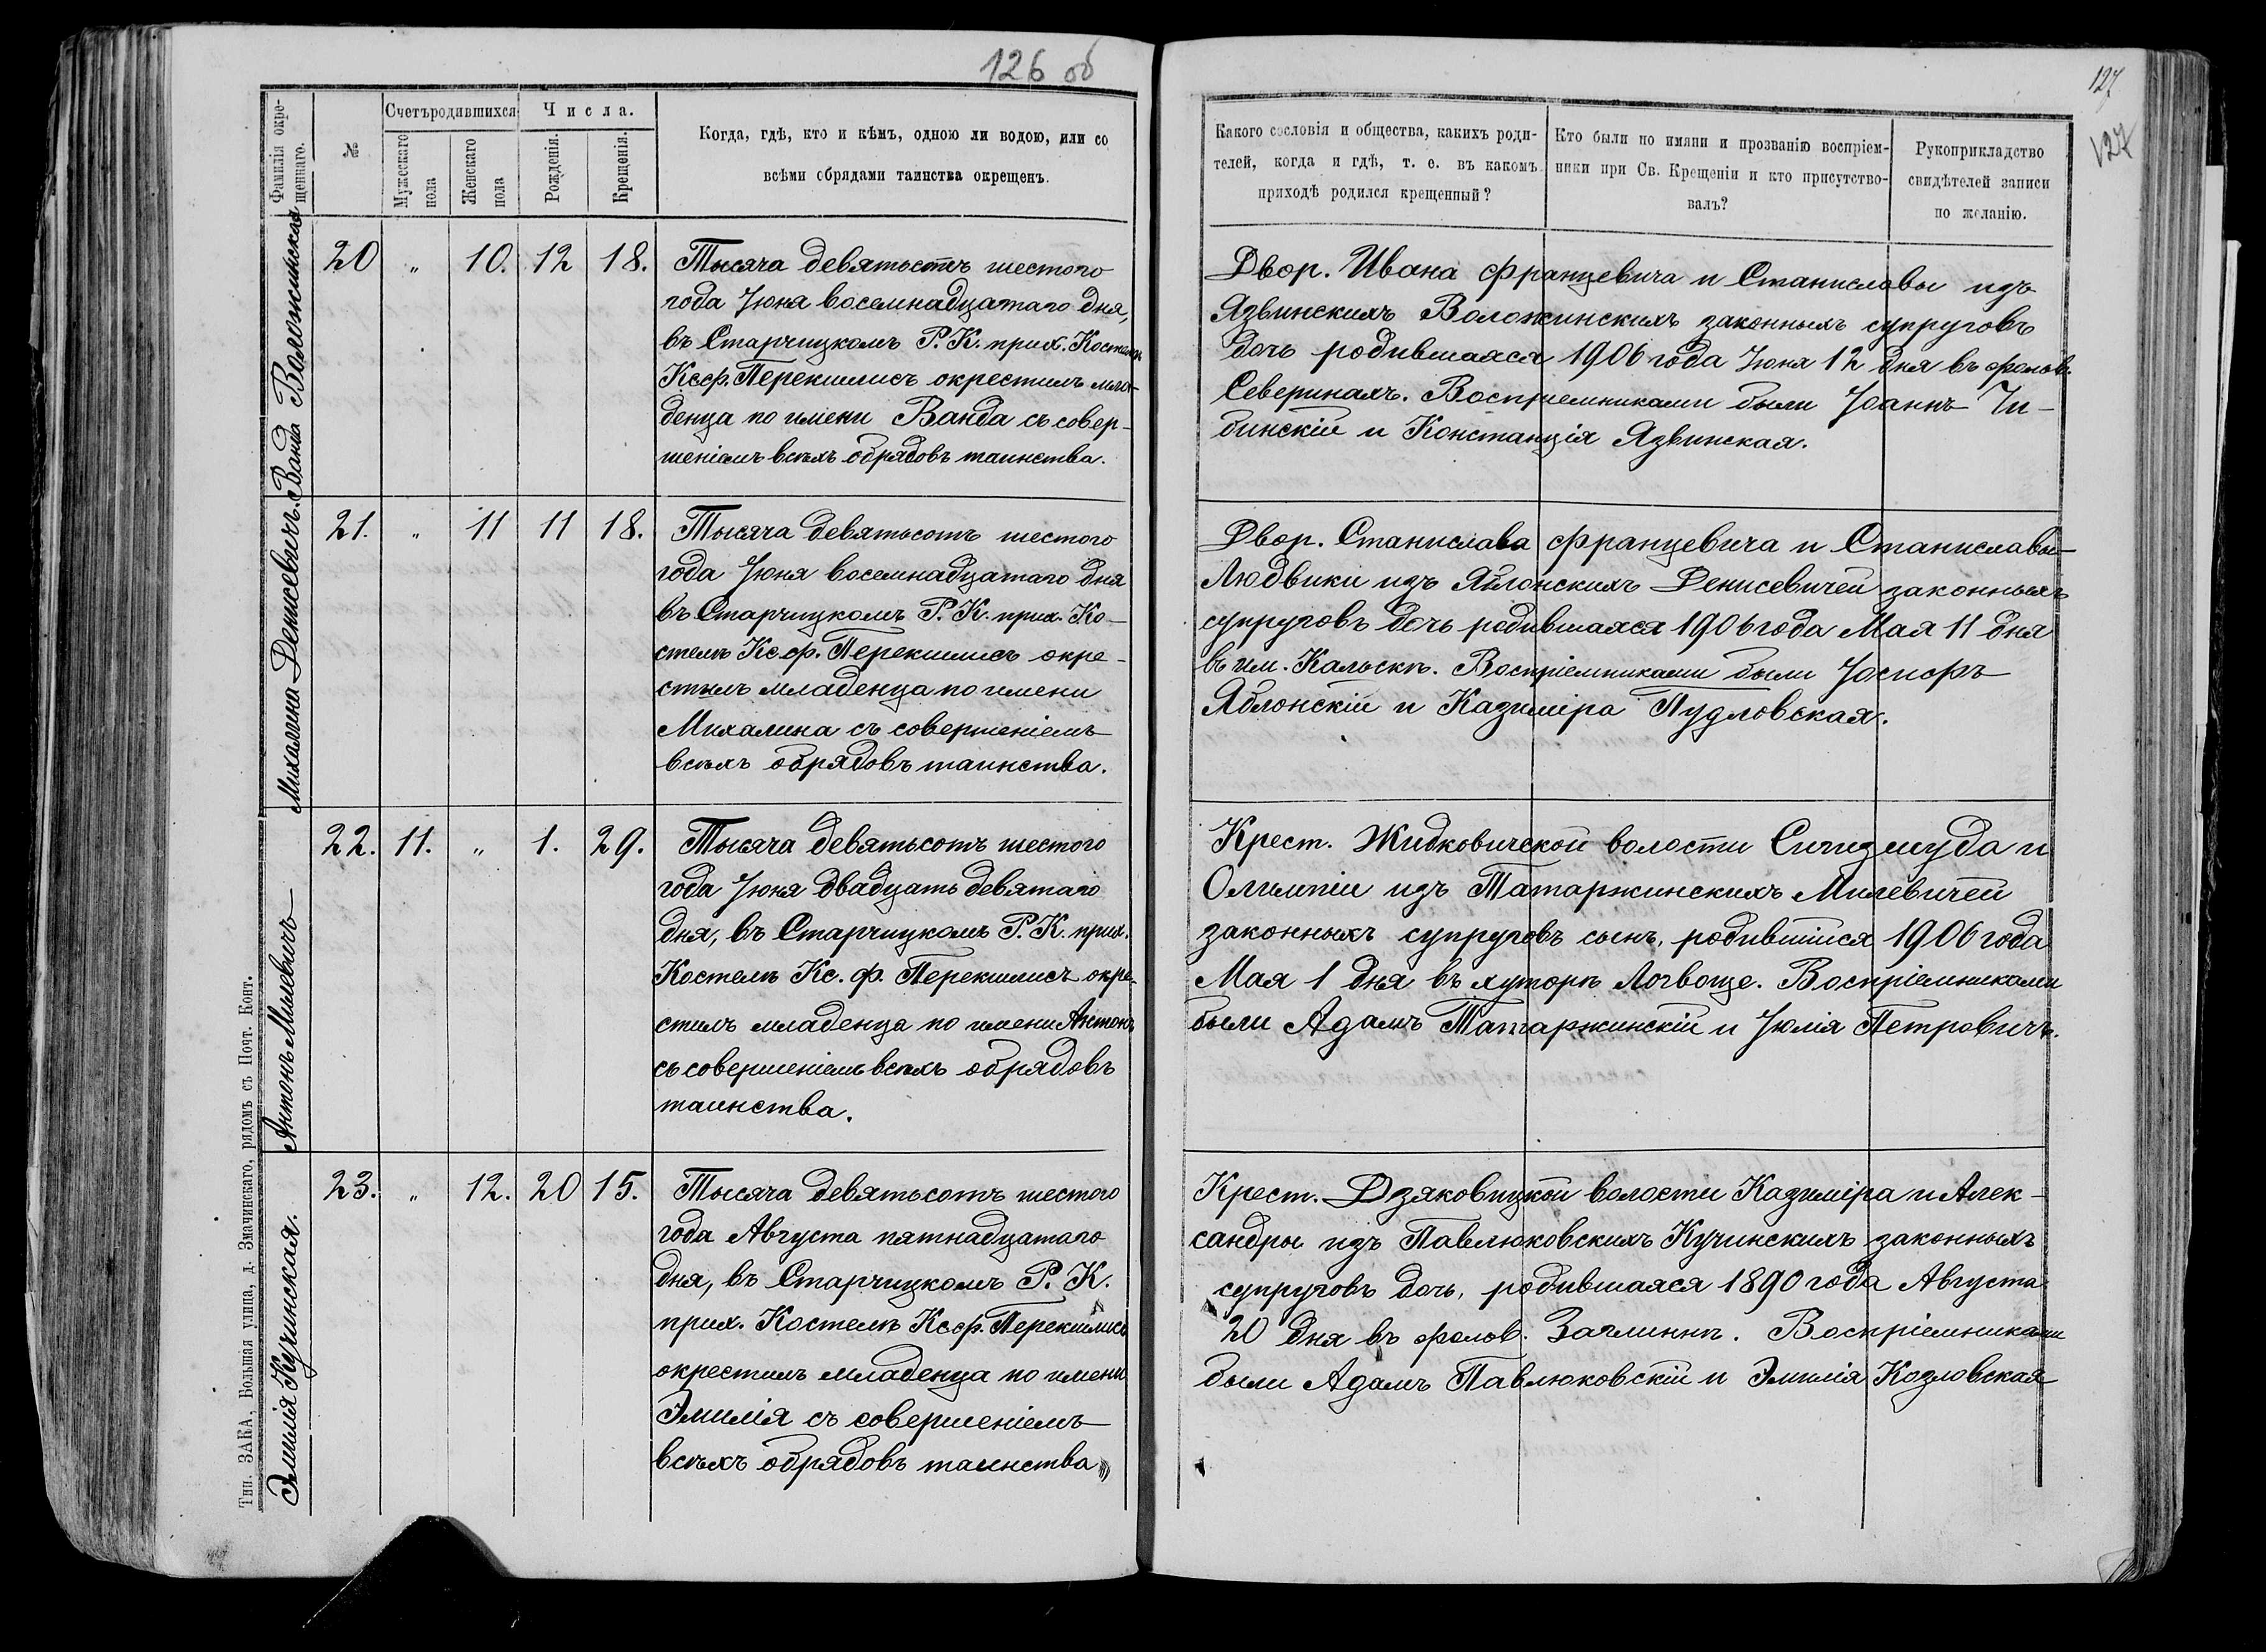 126 об
Фамилія окре-
щеннаго.
№
Счетъ родившихся
Мужескаго
пола
Женскаго
пола
Числа.
Рожденія.
Крещенія.
Когда, гдѣ, кто и кѣмъ, одною ли водою, или со
всѣми обрядами таинства окрещенъ.
Ванда Воложинская
20 „ 10. 12 18.
Тысяча девятьсотъ шестого
года Іюня восемнадцатаго дня,
въ Старчицкомъ Р. К. прих. Костелѣ
Ксф. Перекшлисъ окрестилъ мла-
денца по имени Ванда съ совер-
шеніемъ всѣхъ обрядовъ таинства.
Михалина Денисевичъ.
21. „ 11 11 18.
Тысяча девятьсотъ шестого
года Іюня восемнадцатаго дня
въ Старчицкомъ Р. К. прих. Ко-
стелѣ Кс. ф. Перекшлисъ окре-
стилъ младенца по имени
Михалина съ совершеніемъ
всѣхъ обрядовъ таинства.
Антонъ Милевичъ
22. 11. „ 1. 29.
Тысяча девятьсотъ шестого
года Іюня двадцать девятаго
дня, въ Старчицкомъ Р. К. прих.
Костелѣ Кс. ф. Перекшлисъ окре-
стилъ младенца по имени Антонъ
съ совершеніемъ всѣхъ обрядовъ
таинства.
Эмилія Кучинская.
23. „ 12. 20 15.
Тысяча девятьсотъ шестого
года Августа пятнадцатаго
дня, въ Старчицкомъ Р. К.
прих. Костелѣ Ксф. Перекшлисъ
окрестилъ младенца по имени
Эмилія съ совершеніемъ
всѣхъ обрядовъ таинства
Тип. ЗАКА, Большая улица, д. Змачинскаго, рядомъ съ Почт. Конт.
127
127
Какого сословія и общества, какихъ роди-
телей, когда и гдѣ, т. е. въ какомъ
приходѣ родился крещенный?
Кто были по имяни и прозванію воспріем-
ники при Св. Крещеніи и кто присутство-
валъ?
Рукоприкладство
свидѣтелей записи
по желанію.
Двор. Ивана Францевича и Станиславы изъ
Язвинскихъ Воложинскихъ законныхъ супруговъ
дочь родившаяся 1906 года Іюня 12 дня въ фольв.
Северинахъ. Воспріемниками были Іоаннъ
и Констанція Язвинская.
Двор. Станислава Францевича и Станиславы-
Людвики изъ Яблонскихъ Денисевичей законныхъ
супруговъ дочь родившаяся 1906 года Мая 11 дня
въ им. Кальскѣ. Воспріемниками были Іосифъ
Яблонскій и Казиміра Пудловская.
Крест. Житковичской волости Сигизмуда и
Олимпіи изъ Татаржинскихъ Милевичей
законныхъ супруговъ сынъ, родившійся 1906 года
Мая 1 дня въ хуторѣ Логвоще. Воспріемниками
были Адамъ Татаржинскій и Юлія Петровичъ.
Крест. Дзяковицкой волости Казиміра и Алек-
сандры изъ Павлюковскихъ Кучинскихъ законныхъ
супруговъ дочь, родившаяся 1890 года Августа
20 дня въ фольв. Заглинкѣ. Воспріемниками
были Адамъ Павлюковскій и Эмилія Козловская